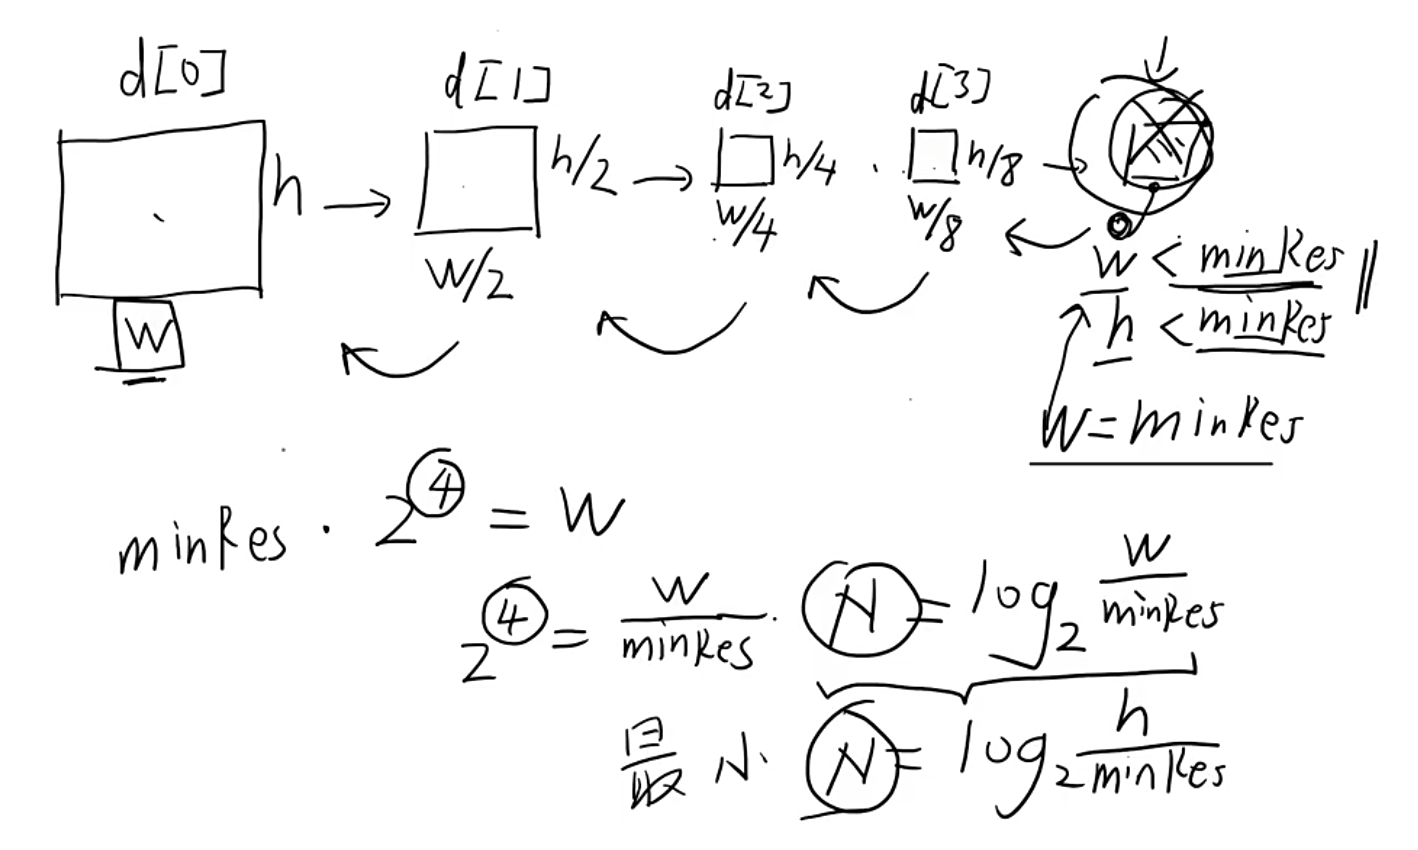 d[0] d[1] d[2] d[3]
h h/2 h/4 h/8
W W/2 W/4 W/8
W < minRes ||
h < minRes
W = minRes
minRes · 2^4 = W
2^4 = W/minRes · N = log₂ W/minRes
最小 N = log₂ h/minRes